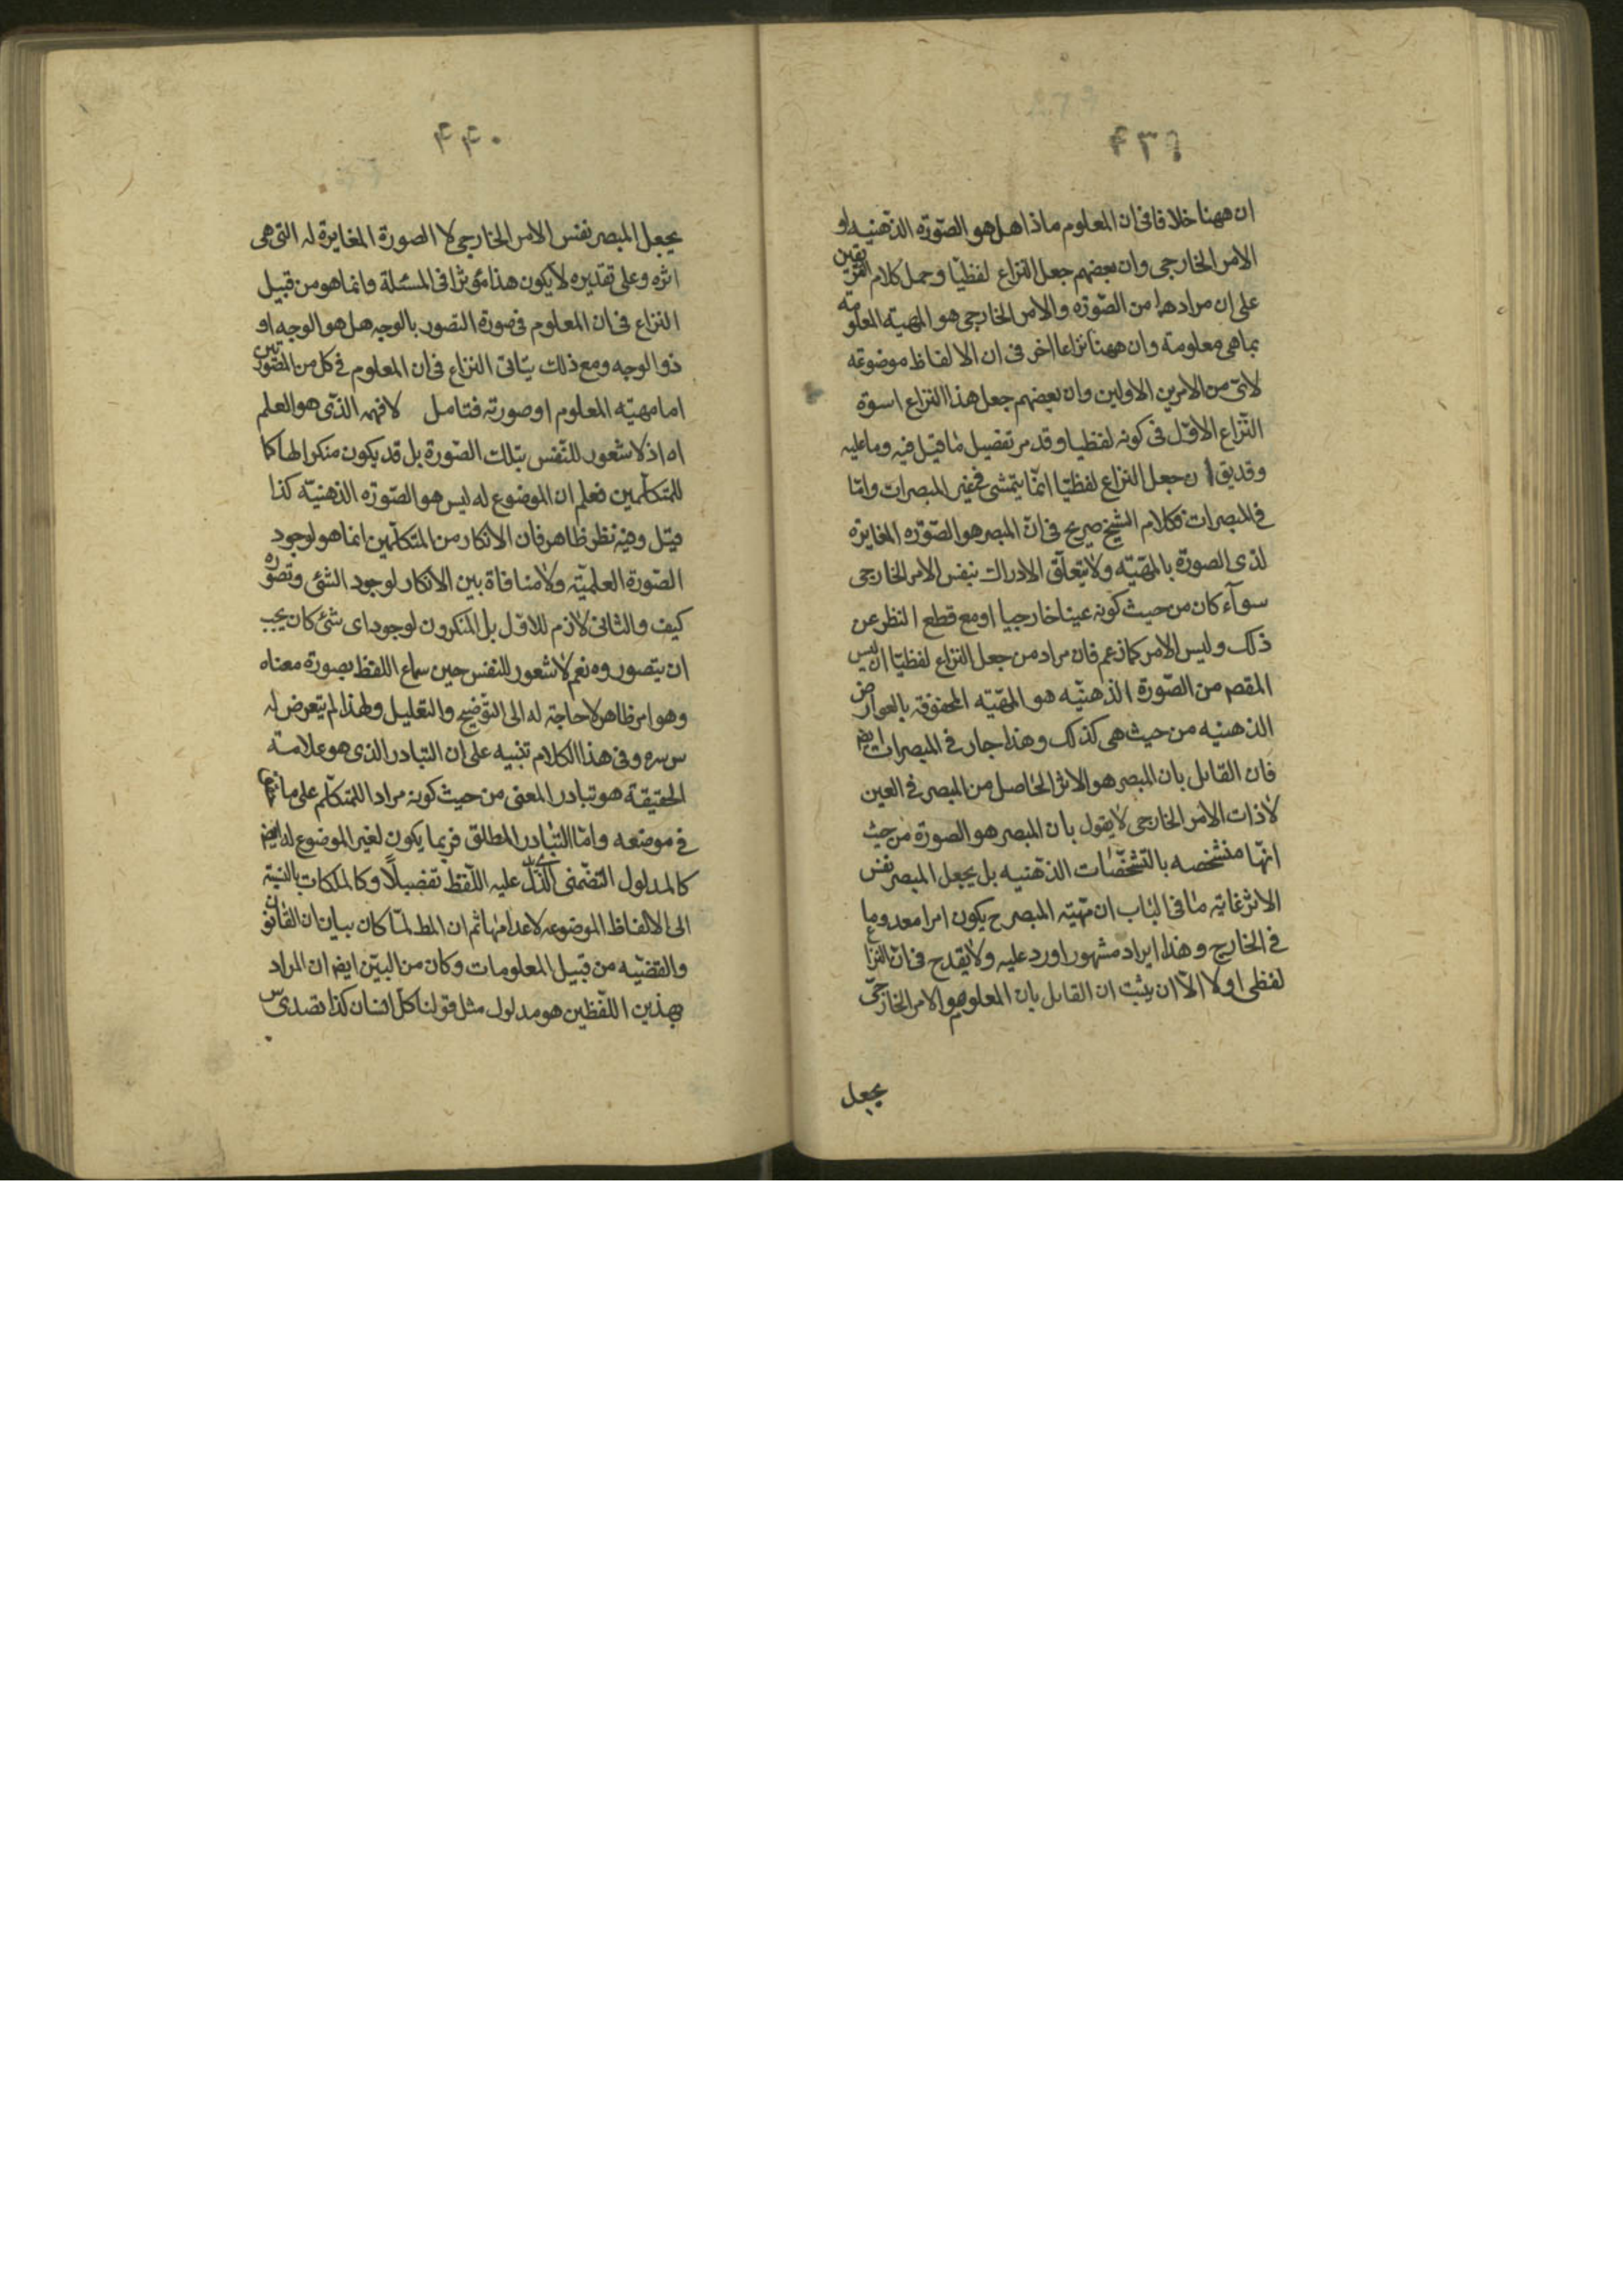 ٤٣٩
ان ههنا خلافا فى ان المعلوم ماذا هل هو الصّورة الذّهنيه او
الامر الخارجى وان بعضهم جعل النزاع لفظيّا وحمل كلام الفريقين
على ان مرادهما من الصّورة والامر الخارجى هو المهية المعلومة
بما هى معلومة وان ههنا نزاعا اخر فى ان الالفاظ موضوعة
لاىّ من الامرين الاولين وان بعضهم جعل هذا النزاع اسوة
النّزاع الاوّل فى كونه لفظيا وقد مر تفصيل ما قيل فيه وما عليه
وقد يق ان جعل النزاع لفظيّا انّما يتمشى فى غير المبصرات وامّا
فى المبصرات فكلام الشيخ صريح فى انّ المبصر هو الصّورة المغايرة
لذى الصورة بالمهيّه ولا يتعلّق الادراك بنفس الامر الخارجى
سوآء كان من حيث كونه عينا خارجيا او مع قطع النظر عن
ذلك وليس الامر كما زعم فان مراد من جعل النزاع لفظيّا ان ليس
المقصم من الصّورة الذهنيّه هو المهيّه المحفوفة بالعوارض
الذهنيه من حيث هى كذلك وهذا جار فى المبصرات ايضم
فان القايل بان المبصر هو الاثر الحاصل من المبصر فى العين
لا ذات الامر الخارجى لا يقول بان المبصر هو الصورة من حيث
انّها متشخصه بالتشخّصات الذّهنيه بل يجعل المبصر نفس
الاثر غاية ما فى الباب ان مهيّه المبصر ح يكون امرا معدوما
فى الخارج وهذا ايراد مشهور اورد عليه ولا يقدح فى انّ النزاع
لفظى اولا الّا ان يثبت ان القايل بان المعلوم هو الامر الخارجىّ
يجعل
٤٤٠
يجعل المبصر نفس الامر الخارجى لا الصورة المغايرة له التى هى
اثره وعلى تقديره لا يكون هذا مؤثرا فى المسئلة وانما هو من قبيل
النزاع فى ان المعلوم فى صورة التصور بالوجه هل هو الوجه او
ذو الوجه ومع ذلك يتاتى النزاع فى ان المعلوم فى كل من الصّورتين
اما مهيّه المعلوم او صورته فتامل لا فهمه الذّى هو العلم
اه اذ لا شعور للنّفس بتلك الصّورة بل قد يكون منكرا لها كما
للمتكلّمين فعلم ان الموضوع له ليس هو الصّورة الذهنيّه كذا
قيل وفيه نظر ظاهر فان الانكار من المتكلّمين انما هو لوجود
الصّورة العلميّه ولا منافاة بين الانكار لوجود الشئى وتصوره
كيف والثانى لازم للاوّل بل المنكرون لوجود اى شئ كان يجب
ان يتصوروه نعم لا شعور للنفس حين سماع اللفظ بصورة معناه
وهو امر ظاهر لا حاجة له الى التوضيح والتعليل ولهذا لم يتعرض له
س سره وفى هذا الكلام تنبيه على ان التبادر الذى هو علامة
الحقيقة هو تبادر المعنى من حيث كونه مرادا للمتكلّم على ما
فى موضعه وامّا التّبادر المطلق فربما يكون لغير الموضوع له ايضم
كالمدلول التضمنى الّذى دلّ عليه اللّفظ تفصيلاً وكالملكات بالنسبة
الى الالفاظ الموضوعه لاعدامها ثم ان المط لمّا كان بيان ان القانون
والقضيّه من قبيل المعلومات وكان من البيّن ايضم ان المراد
بهذين اللّفظين هو مدلول مثل قولنا كلّ انسان كذا تصدى س